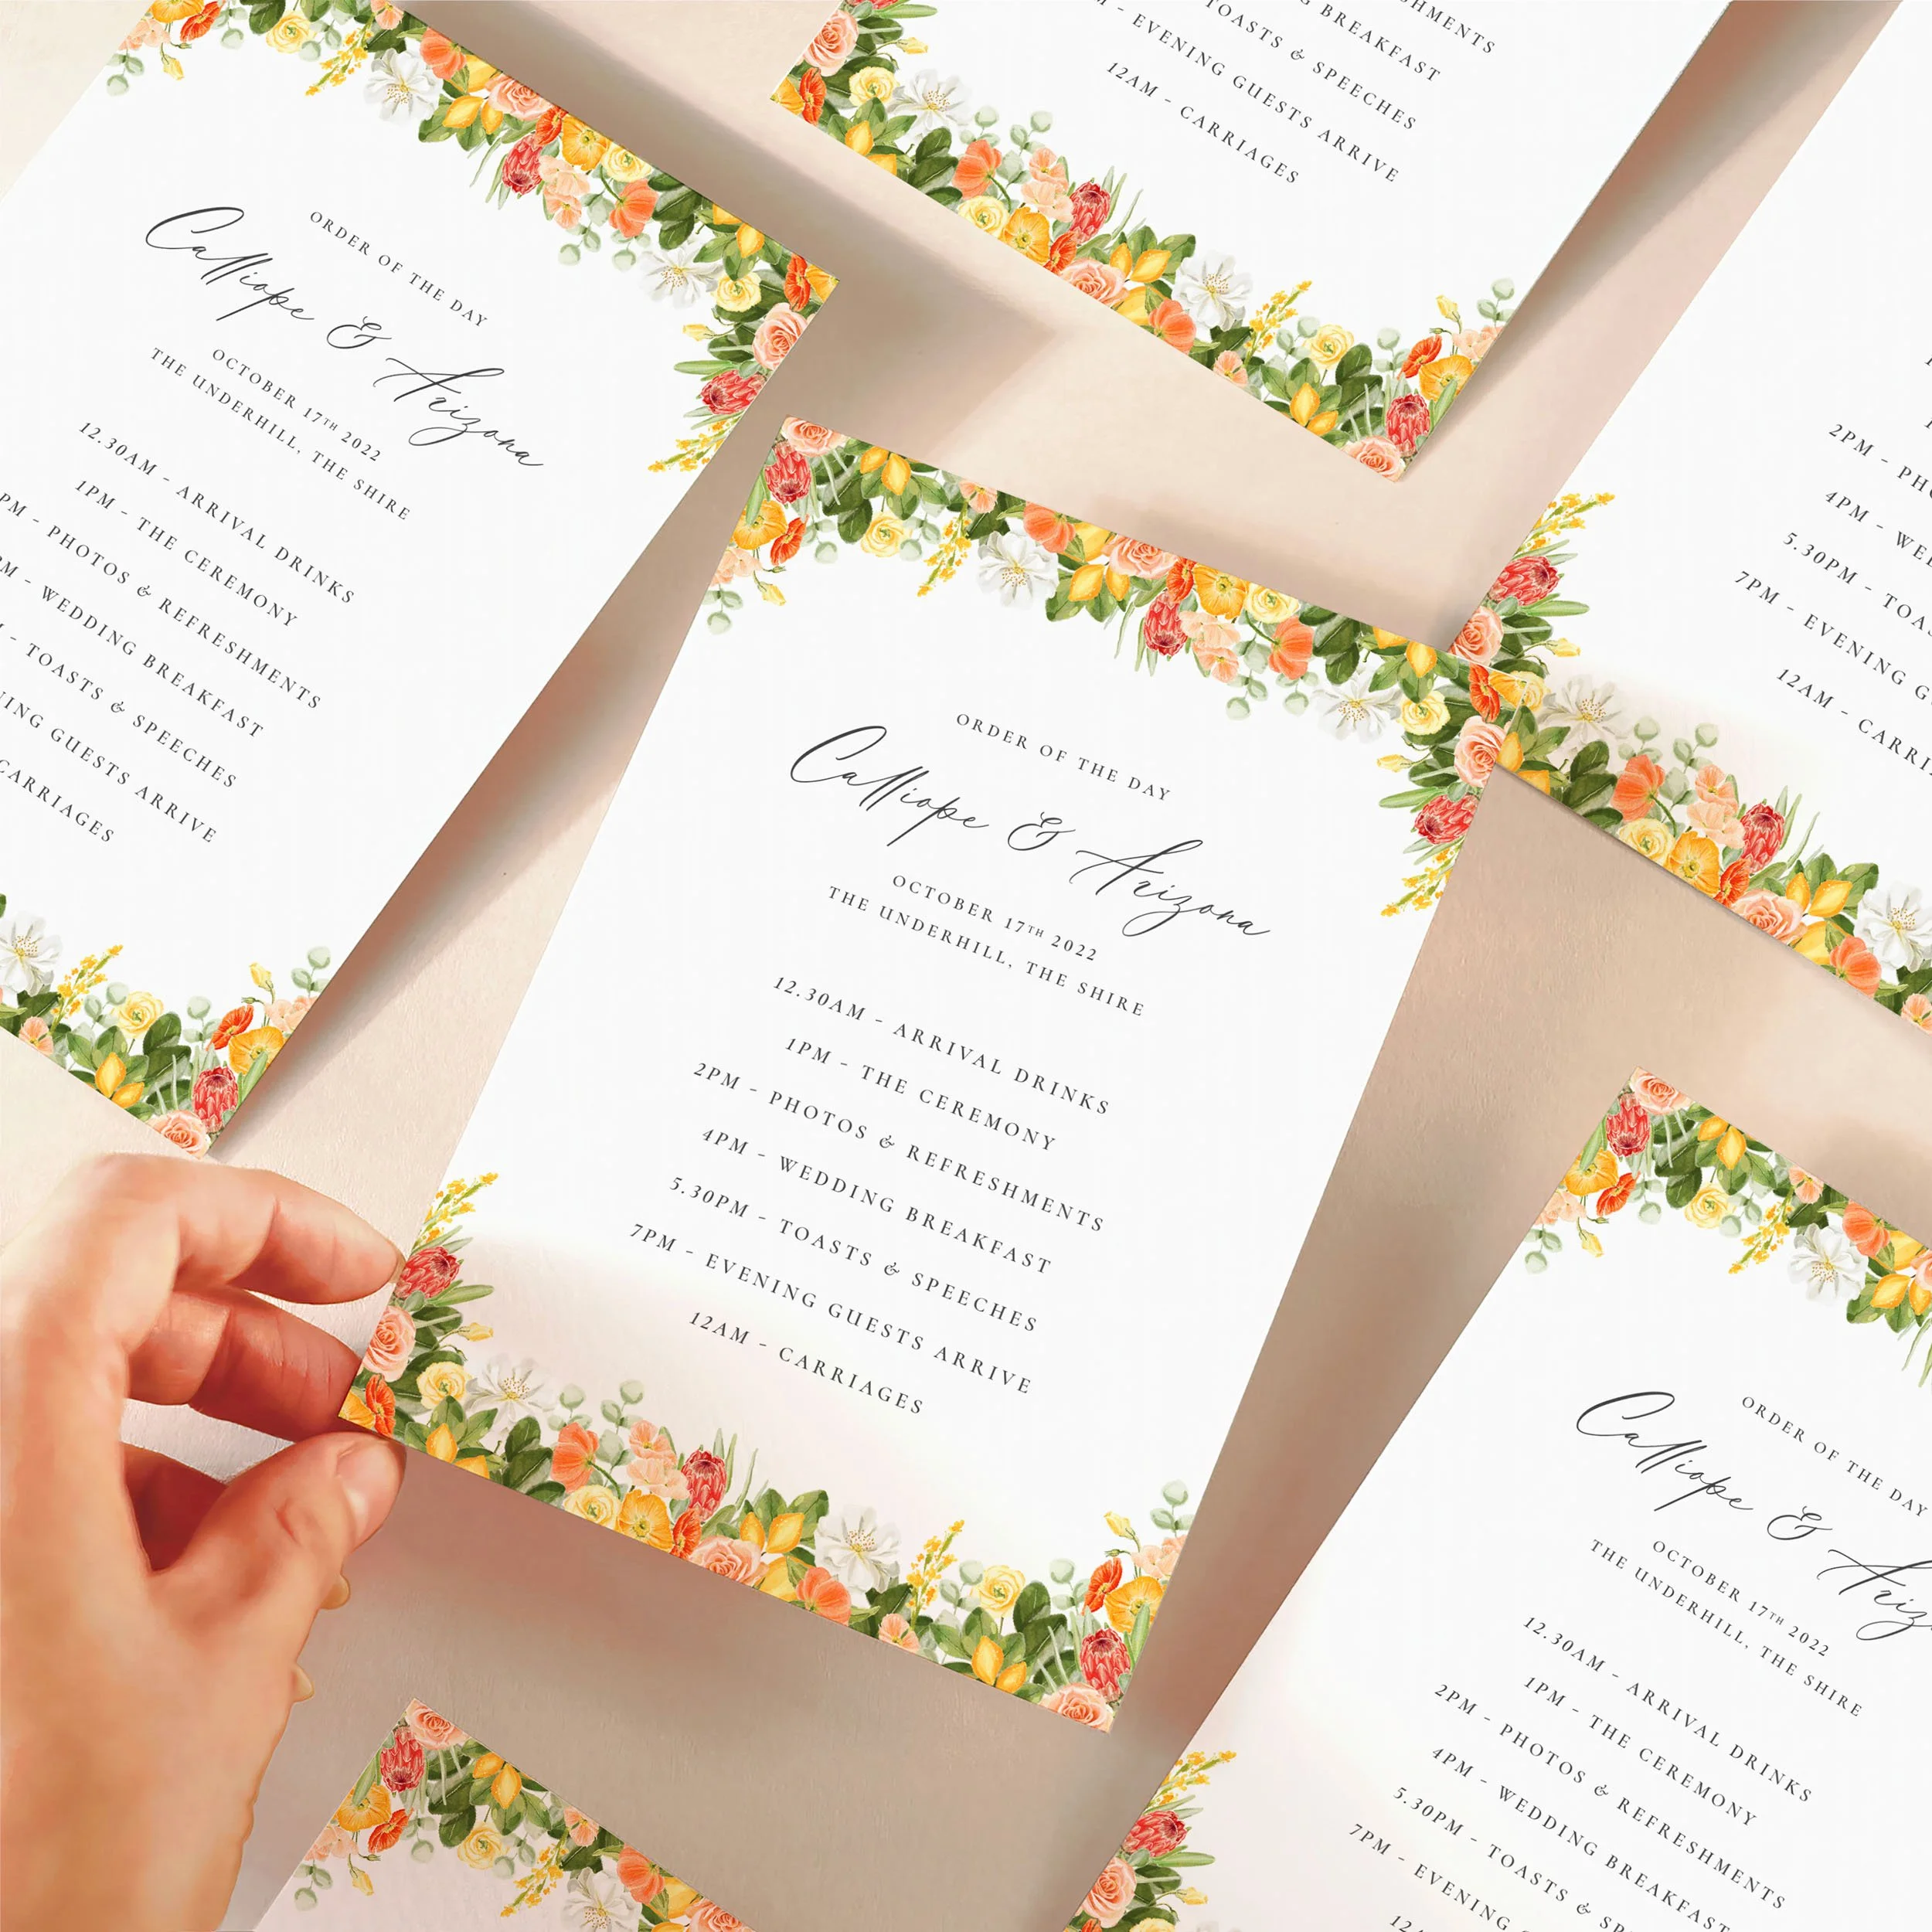 HMENTS
G BREAKFAST
TOASTS & SPEECHES
M - EVENING GUESTS ARRIVE
12AM - CARRIAGES
ORDER OF THE DAY
Calliope & Arizona
OCTOBER 17TH 2022
THE UNDERHILL, THE SHIRE
12.30AM - ARRIVAL DRINKS
1PM - THE CEREMONY
PM - PHOTOS & REFRESHMENTS
M - WEDDING BREAKFAST
- TOASTS & SPEECHES
NING GUESTS ARRIVE
CARRIAGES
2PM - PHO
4PM - WE
5.30PM - TOA
7PM - EVENING G
12AM - CARRI
ORDER OF THE DAY
Calliope & Arizona
OCTOBER 17TH 2022
THE UNDERHILL, THE SHIRE
12.30AM - ARRIVAL DRINKS
1PM - THE CEREMONY
2PM - PHOTOS & REFRESHMENTS
4PM - WEDDING BREAKFAST
5.30PM - TOASTS & SPEECHES
7PM - EVENING GUESTS ARRIVE
12AM - CARRIAGES
ORDER OF THE DAY
Calliope & Ariz
OCTOBER 17TH 2022
THE UNDERHILL, THE SHIRE
12.30AM - ARRIVAL DRINKS
1PM - THE CEREMONY
2PM - PHOTOS & REFRESHMENTS
4PM - WEDDING BREAKFAST
5.30PM - TOASTS & SP
7PM - EVENING
12A